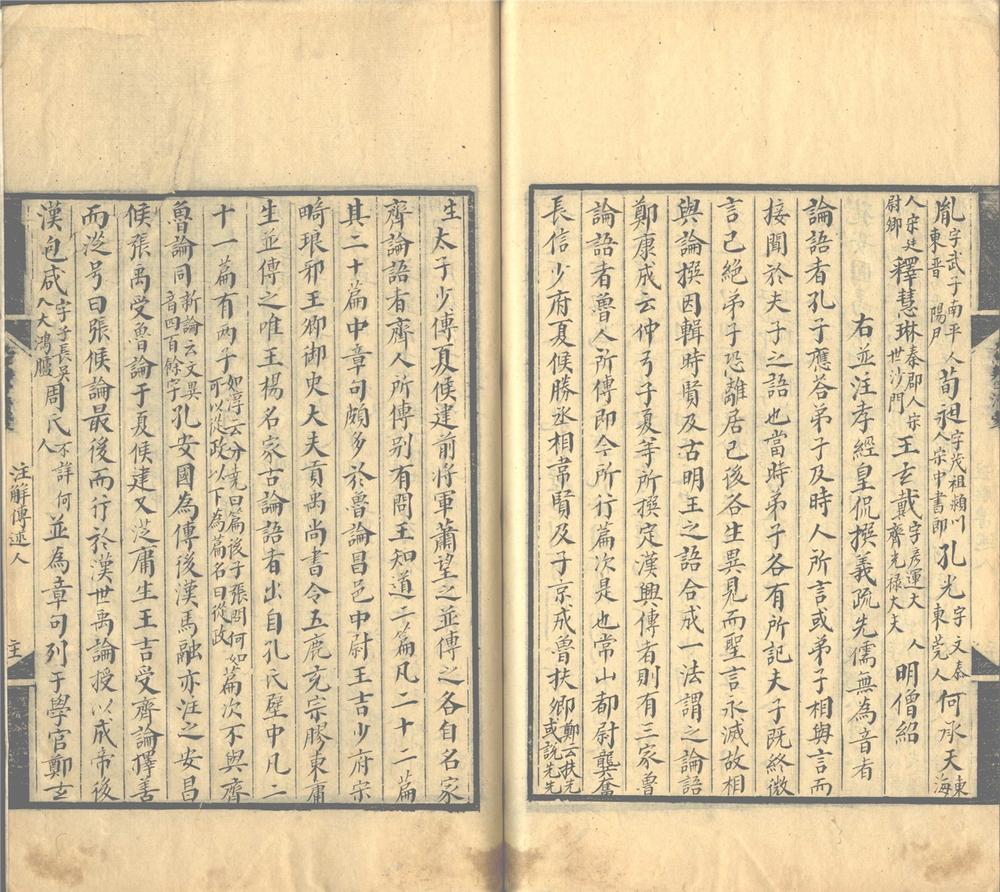 胤字武子南平人東晉 陽尹荀昶字茂祖潁川人宋中書郎孔光字文泰東莞人何承天東海
人宋廷尉卿釋慧琳秦郡人宋世沙門王玄戴字彥運大 人齊光祿大夫明僧紹
右並注孝經皇侃撰義疏先儒無為音者
論語者孔子應荅弟子及時人所言或弟子相與言而
接聞於夫子之語也當時弟子各有所記夫子既終微
言已絕弟子恐離居已後各生異見而聖言永滅故相
與論撰因輯時賢及古明王之語合成一法謂之論語
鄭康成云仲弓子夏等所撰定漢興傳者則有三家魯
論語者魯人所傳即今所行篇次是也常山都尉龔奮
長信少府夏侯勝丞相韋賢及子京成魯扶卿鄭云扶先或說先先
生太子少傅夏侯建前將軍蕭望之並傳之各自名家
齊論語者齊人所傳別有問王知道二篇凡二十二篇
其二十篇中章句頗多於魯論昌邑中尉王吉少府宋
畸琅邪王卿御史大夫貢禹尚書令五鹿充宗膠東庸
生並傳之唯王楊名家古論語者出自孔氏壁中凡二
十一篇有两子張如淳云分堯曰篇後子張問何如可以從政以下為篇名曰從政篇次不與齊
魯論同新論云文異音四百餘字孔安國為傳後漢馬融亦注之安昌
侯張禹受魯論于夏侯建又從庸生王吉受齊論擇善
而從号曰張侯論最後而行於漢世禹論授以成帝後
漢包咸字子長吳人大鴻臚周氏不詳何人並為章句列于學官鄭玄
注解傳述人
主